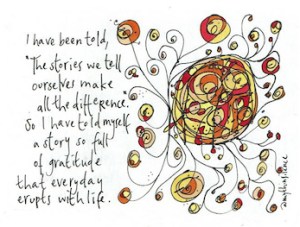 I have been told,
"The stories we tell
ourselves make
all the difference."
So I have told myself
a story so full
of gratitude
that everyday
erupts with life.